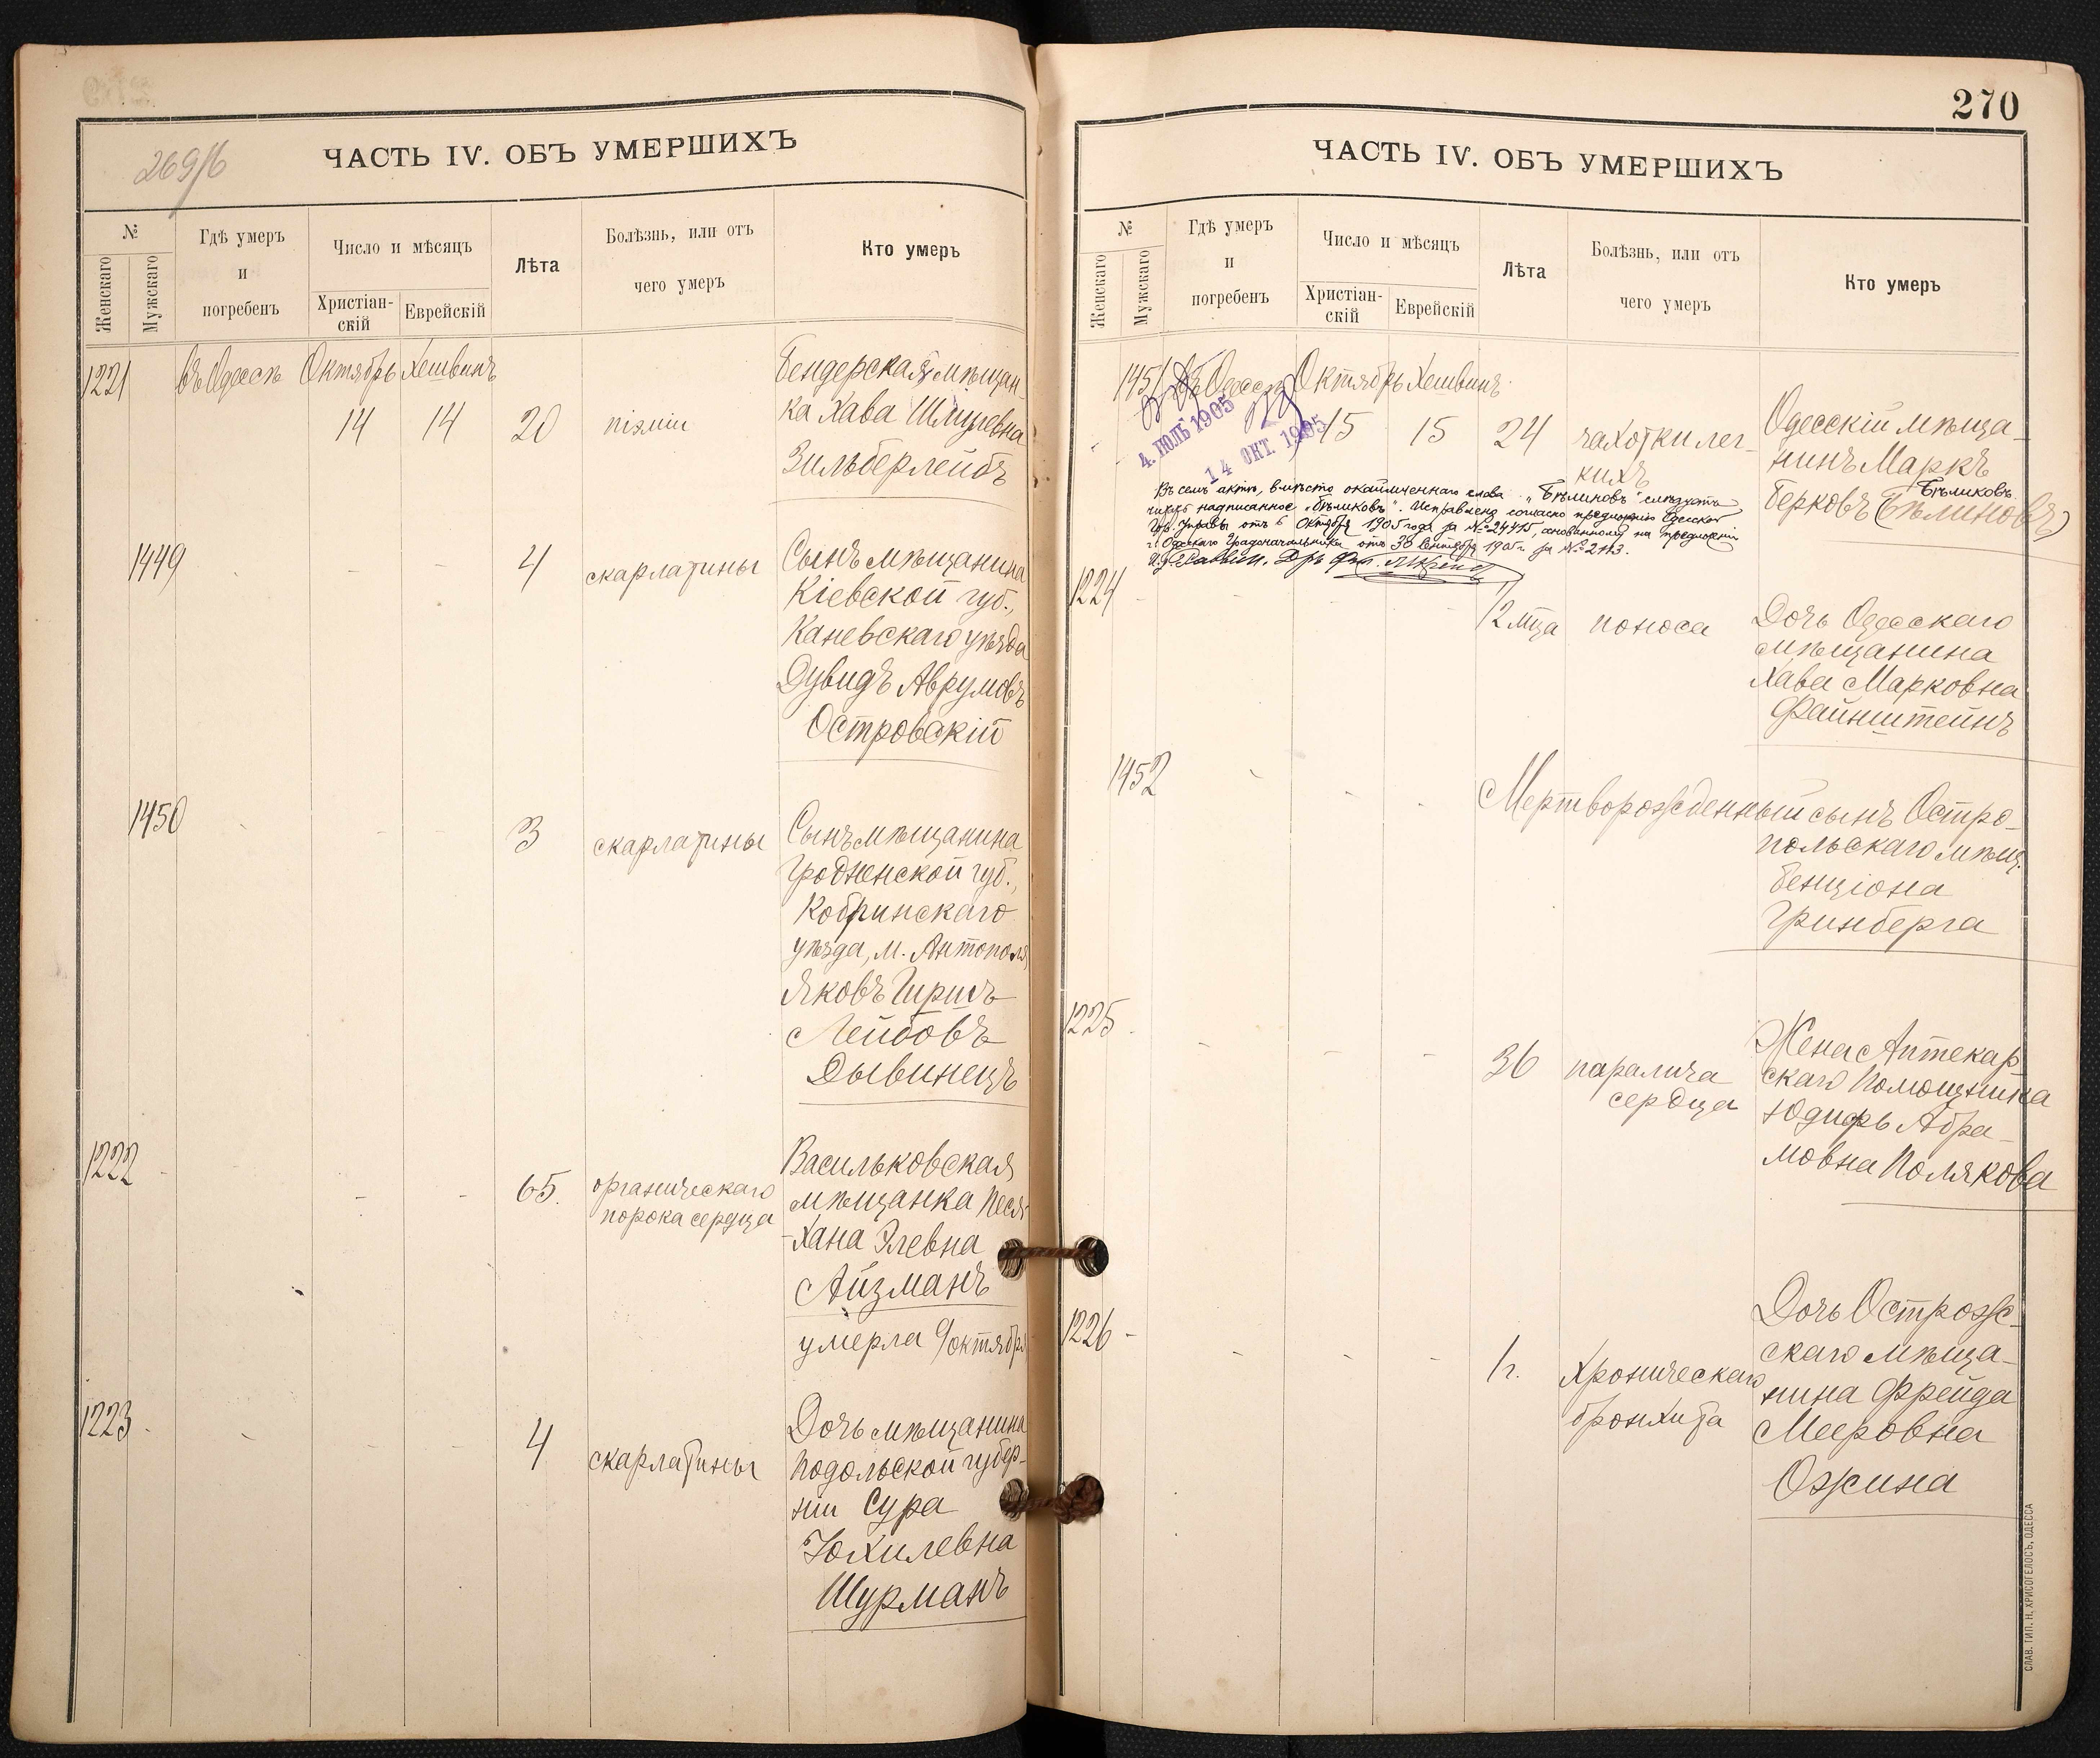 269/б
ЧАСТЬ IV. ОБЪ УМЕРШИХЪ
№
Женскаго
Мужскаго
Гдѣ умеръ
и
погребенъ
Число и мѣсяцъ
Христіан-
скій
Еврейскій
Лѣта
Болѣзнь, или отъ
чего умеръ
Кто умеръ
1221 въ Одессѣ Октябрь Хешвинъ
14 14 20 піэміи
Бендерская мѣщан-
ка Хава Шмулевна
Зильберлейбъ
1449 - - - 4 скарлатины
Сынъ мѣщанина
Кіевской губ.,
Каневскаго уѣзда
Дувидъ Аврумовъ
Островскій
1450 - - - 3 скарлатины
Сынъ мѣщанина
Гродненской губ.,
Кобринскаго
уѣзда, м. Антополя
Яковъ Гиршъ
Лейбовъ
Дывинецъ
1222 - - - 65. органическаго
порока сердца
Васильковская
мѣщанка Песя-
-Хана Элевна
Айзманъ
умерла 9/октября
1223 - - - 4 скарлатины
Дочь мѣщанина
Подольской губер-
ніи Сура
Іохилевна
Шурманъ
270
ЧАСТЬ IV. ОБЪ УМЕРШИХЪ
№
Женскаго
Мужскаго
Гдѣ умеръ
и
погребенъ
Число и мѣсяцъ
Христіан-
скій
Еврейскій
Лѣта
Болѣзнь, или отъ
чего умеръ
Кто умеръ
1451 въ Одессѣ Октябрь Хешвинъ
15 15 24 чахотки лег-
кихъ
Одесскій мѣща-
нинъ Маркъ
Бѣликовъ
Берковъ (Бѣлиновъ)
4. ІЮЛЬ 1905
14 ОКТ. 1905
Въ семъ актѣ, вмѣсто окаймленнаго слова „Бѣлиновъ" слѣдуетъ
читать надписанное „Бѣликовъ". Исправлено согласно предложенію Одесской
Гор. Управы отъ 6 Октября 1905 года за №24415, основанному на предложеніи
г. Одесскаго Градоначальника отъ 30 Сентября 1905 г. за № 2113.
И. д. Раввин. Д-ръ Фил.
1224 - - - 2 м-ца поноса
Дочь Одесскаго
мѣщанина
Хава Марковна
Файнштейнъ
1452 - - -
Мертворожденный сынъ Остро-
польскаго мѣщ.
Бенціона
Гринберга
1225 - - - 36 паралича
сердца
Жена Аптекар
скаго Помощника
Юдифь Абра-
мовна Полякова
1226 - - - 1 г. хроническаго
бронхита
Дочь Острож-
скаго мѣща-
нина Фрейда
Мееровна
Ожина
СЛАВ. ТИП. Н. ХРИСОГЕЛОСЪ, ОДЕССА